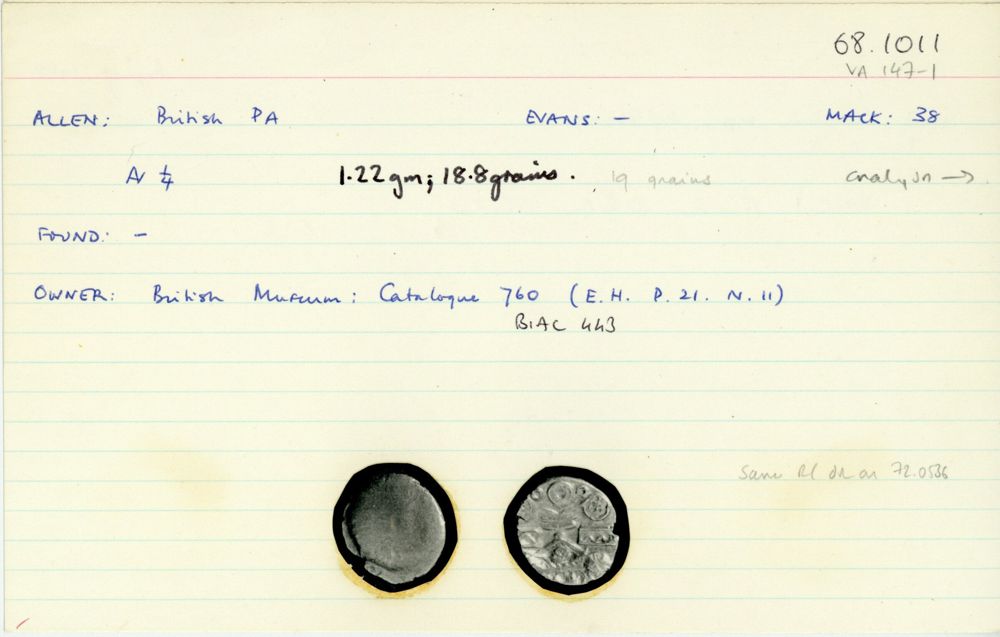 68.1011
VA 147-1
ALLEN: British PA EVANS: - MACK: 38
AV ¼ 1.22gm; 18.8grains. 19 grains analysis →
FOUND: -
OWNER: British Museum: Catalogue 760 (E.H. P. 21. N. 11)
BIAC 443
Same die as 72.0536